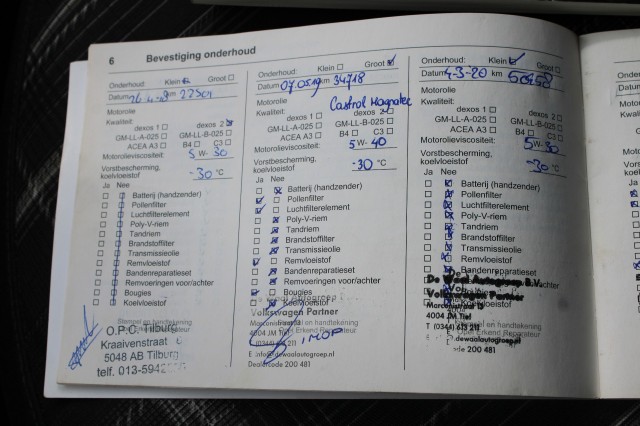 6 Bevestiging onderhoud
Onderhoud: Klein Groot
Datum km 22501
Motorolie
Kwaliteit:
dexos 1 dexos 2
GM-LL-A-025 GM-LL-B-025
ACEA A3 B4 C3
Motorolieviscositeit: 5 W- 30
Vorstbescherming,
koelvloeistof -30 °C
Ja Nee
Batterij (handzender)
Pollenfilter
Luchtfilterelement
Poly-V-riem
Tandriem
Brandstoffilter
Transmissieolie
Remvloeistof
Bandenreparatieset
Remvoeringen voor/achter
Bougies
Koelvloeistof
O.P.C. Tilburg
Kraaivenstraat
5048 AB Tilburg
telf. 013-5942
Onderhoud: Klein Groot
Datum 07.05.19 km 34718
Motorolie
Castrol Magnatec
Kwaliteit:
dexos 1 dexos 2
GM-LL-A-025 GM-LL-B-025
ACEA A3 B4 C3
Motorolieviscositeit: 5 W- 40
Vorstbescherming,
koelvloeistof -30 °C
Ja Nee
Batterij (handzender)
Pollenfilter
Luchtfilterelement
Poly-V-riem
Tandriem
Brandstoffilter
Transmissieolie
Remvloeistof
Bandenreparatieset
Remvoeringen voor/achter
Bougies
Koelvloeistof
Volkswagen Partner
Marconistraat
4004 JM Tiel
E info@dewaalautogroep.nl
Dealercode 200 481
Onderhoud: Klein Groot
Datum 4-3-20 km 50458
Motorolie
Kwaliteit:
dexos 1 dexos 2
GM-LL-A-025 GM-LL-B-025
ACEA A3 B4 C3
Motorolieviscositeit: 5 W- 30
Vorstbescherming,
koelvloeistof -30 °C
Ja Nee
Batterij (handzender)
Pollenfilter
Luchtfilterelement
Poly-V-riem
Tandriem
Brandstoffilter
Transmissieolie
Remvloeistof
Bandenreparatieset
De Waal Autogroep B.V.
Volkswagen Partner
Marconistraat 13
4004 JM Tiel
T (0344) 613 211
dewaalautogroep.nl
Dealercode 200 481